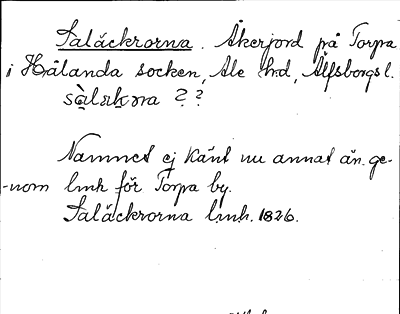 Saläckrorna. Åkerjord på Torpa
i Hålanda socken, Ale h:d, Älfsborgs l.
sàlækrna ??
Namnet ej känt nu annat än ge-
-nom lmh för Torpa by.
Saläckrorna lmh. 1826.